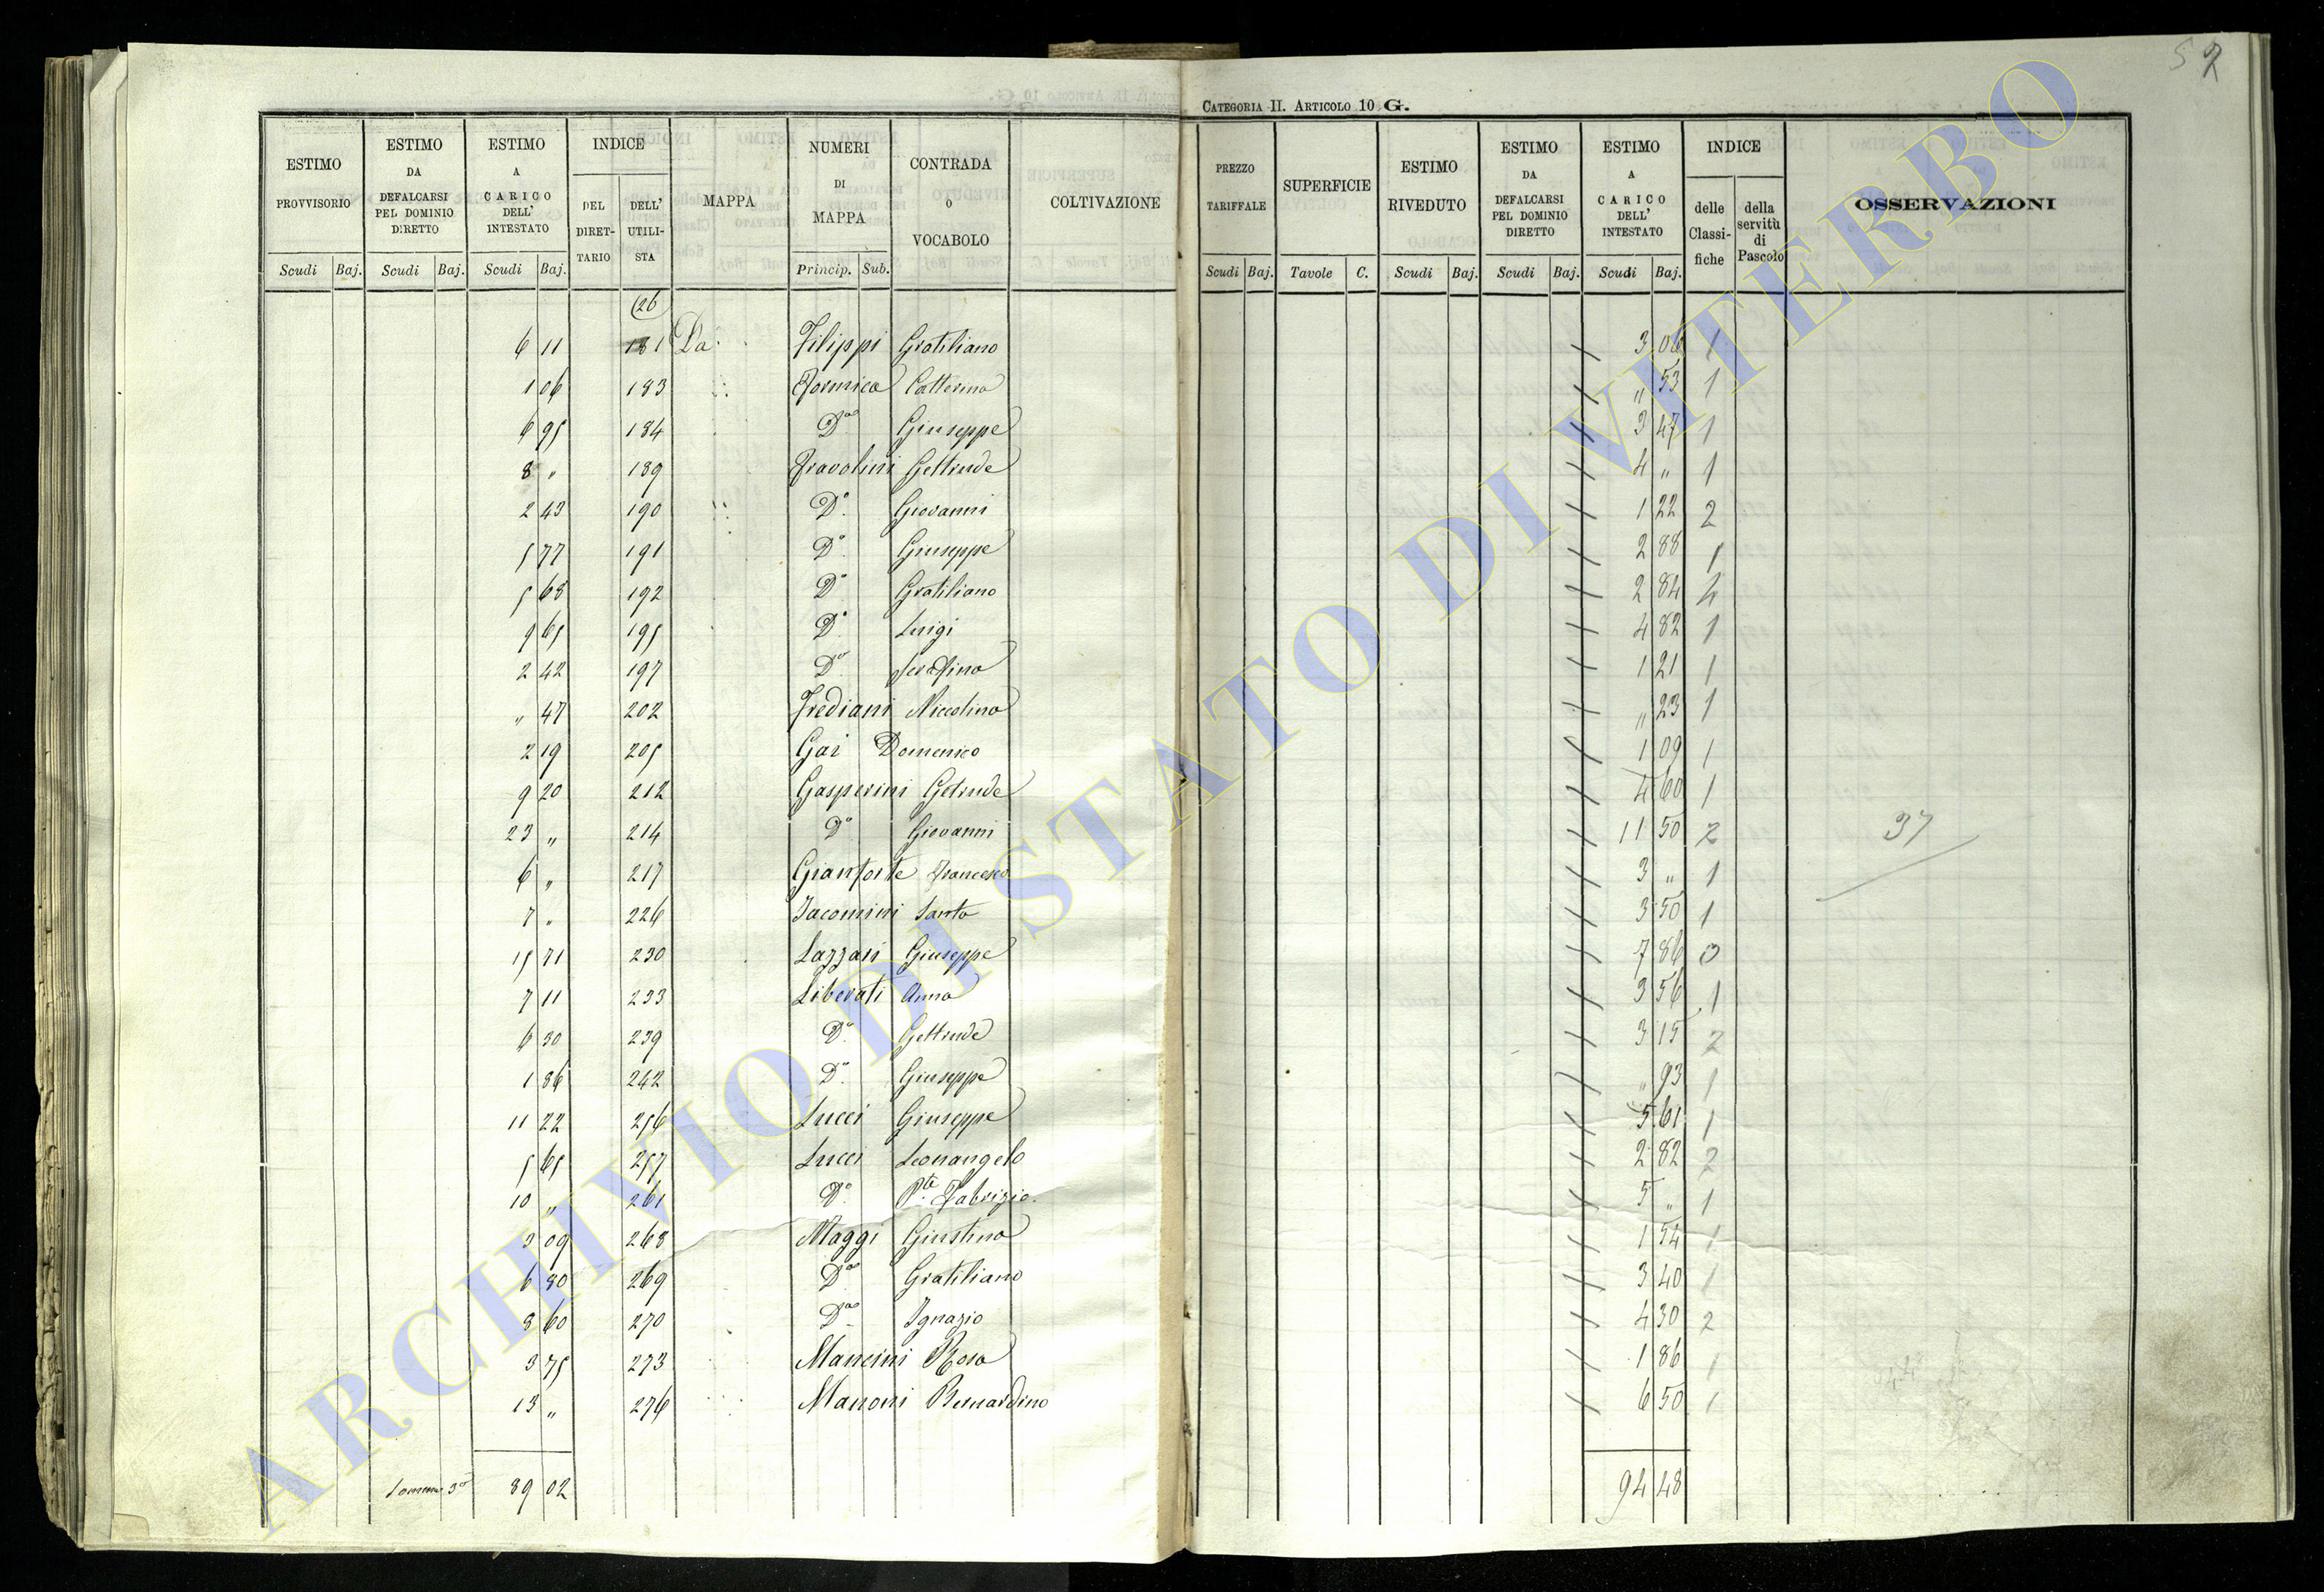 52
CATEGORIA II. ARTICOLO 10 G.
ESTIMO PROVVISORIO
ESTIMO DA DEFALCARSI PEL DOMINIO DIRETTO
ESTIMO A CARICO DELL' INTESTATO
INDICE
DEL DIRET-TARIO
DELL' UTILI-STA
MAPPA
NUMERI DI MAPPA
CONTRADA O VOCABOLO
COLTIVAZIONE
PREZZO TARIFFALE
SUPERFICIE
ESTIMO RIVEDUTO
ESTIMO DA DEFALCARSI PEL DOMINIO DIRETTO
ESTIMO A CARICO DELL' INTESTATO
INDICE
delle Classi-fiche
della servitù di Pascolo
OSSERVAZIONI
Scudi Baj. Scudi Baj. Scudi Baj. Princip. Sub. Scudi Baj. Tavole C. Scudi Baj. Scudi Baj. Scudi Baj.
26
6 11 181 Da Filippi Gratiliano 3 06 1
1 06 183 Formica Catterina " 53 1
6 95 184 Do Giuseppe 3 47 1
8 " 189 Fravolini Geltrude 4 " 1
2 43 190 Do Giovanni 1 22 2
5 77 191 Do Giuseppe 2 88 1
5 68 192 Do Gratiliano 2 84 4
9 65 195 Do Luigi 4 82 1
2 42 197 Do Serafino 1 21 1
" 47 202 Frediani Niccolina " 23 1
2 19 205 Gai Domenico 1 09 1
9 20 212 Gasperini Getrude 4 60 1
23 " 214 Do Giovanni 11 50 2
37
6 " 217 Gianforte Francesco 3 " 1
7 " 226 Jacomini Santa 3 50 1
15 71 230 Lazzari Giuseppe 7 86 0
7 11 233 Liberati Anna 3 56 1
6 30 239 Do Geltrude 3 15 2
1 86 242 Do Giuseppe " 93 1
11 22 256 Lucci Giuseppe 5 61 1
5 65 257 Lucci Leonangelo 2 82 2
10 " 261 Do Pta Fabrizio 5 " 1
3 09 268 Maggi Giustina 1 54 1
6 80 269 Do Gratiliano 3 40 1
8 60 270 Do Ignazio 4 30 2
3 75 273 Mancini Rosa 1 86 1
13 " 276 Manoni Bernardino 6 50 1
89 02 94 48
ARCHIVIO DI STATO DI VITERBO